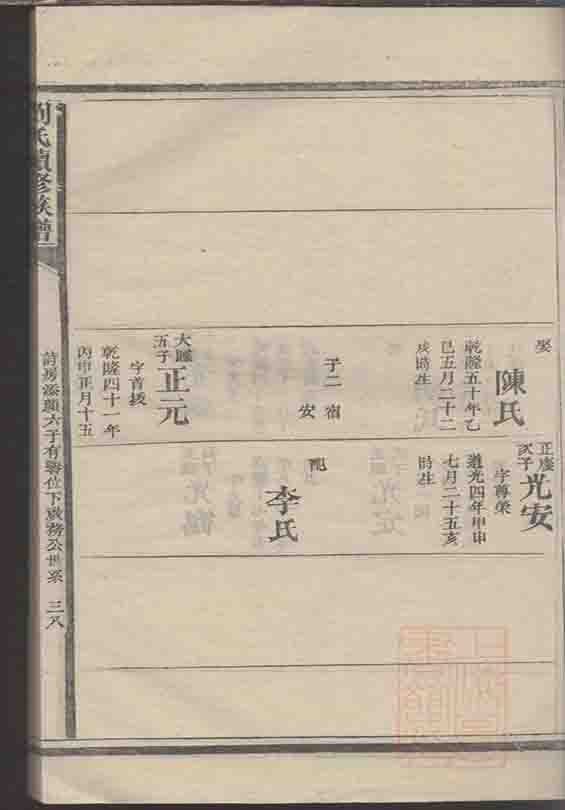 娶
陳氏
乾隆五十年乙
巳五月二十二
戌時生
子二
宿
安
大
五子
正元
字首援
乾隆四十一年
丙申正月十五
正
次子
光安
字尊榮
道光四年甲申
七月二十五亥
時生
配
李氏
劉氏續修族譜
詩房添順六子有
位下
務公世系
三八